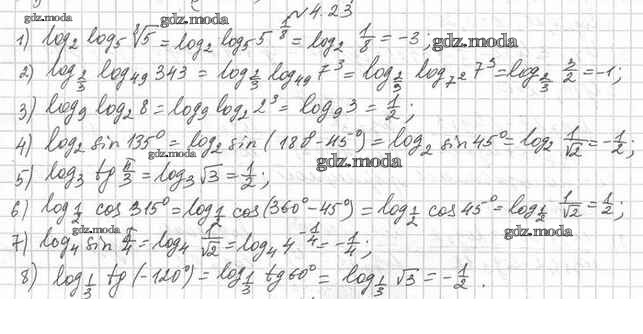 gdz.moda
gdz.moda
№4.23
1) log₂ log₅ ⁸√5 = log₂ log₅ 5^(1/8) = log₂ 1/8 = -3; gdz.moda
2) log_(2/3) log₄₉ 343 = log_(2/3) log₄₉ 7³ = log_(2/3) log_(7²) 7³ = log_(2/3) 3/2 = -1;
3) log₉ log₂ 8 = log₉ log₂ 2³ = log₉ 3 = 1/2;
4) log₂ sin 135° = log₂ sin (180-45°) = log₂ sin 45° = log₂ 1/√2 = -1/2;
gdz.moda
gdz.moda
5) log₃ tg π/3 = log₃ √3 = 1/2;
6) log_(1/2) cos 315° = log_(1/2) cos (360°-45°) = log_(1/2) cos 45° = log_(1/2) 1/√2 = 1/2;
gdz.moda
gdz.moda
7) log₄ sin π/4 = log₄ 1/√2 = log₄ 4^(-1/4) = -1/4;
8) log_(1/3) tg (-120°) = log_(1/3) tg 60° = log_(1/3) √3 = -1/2.